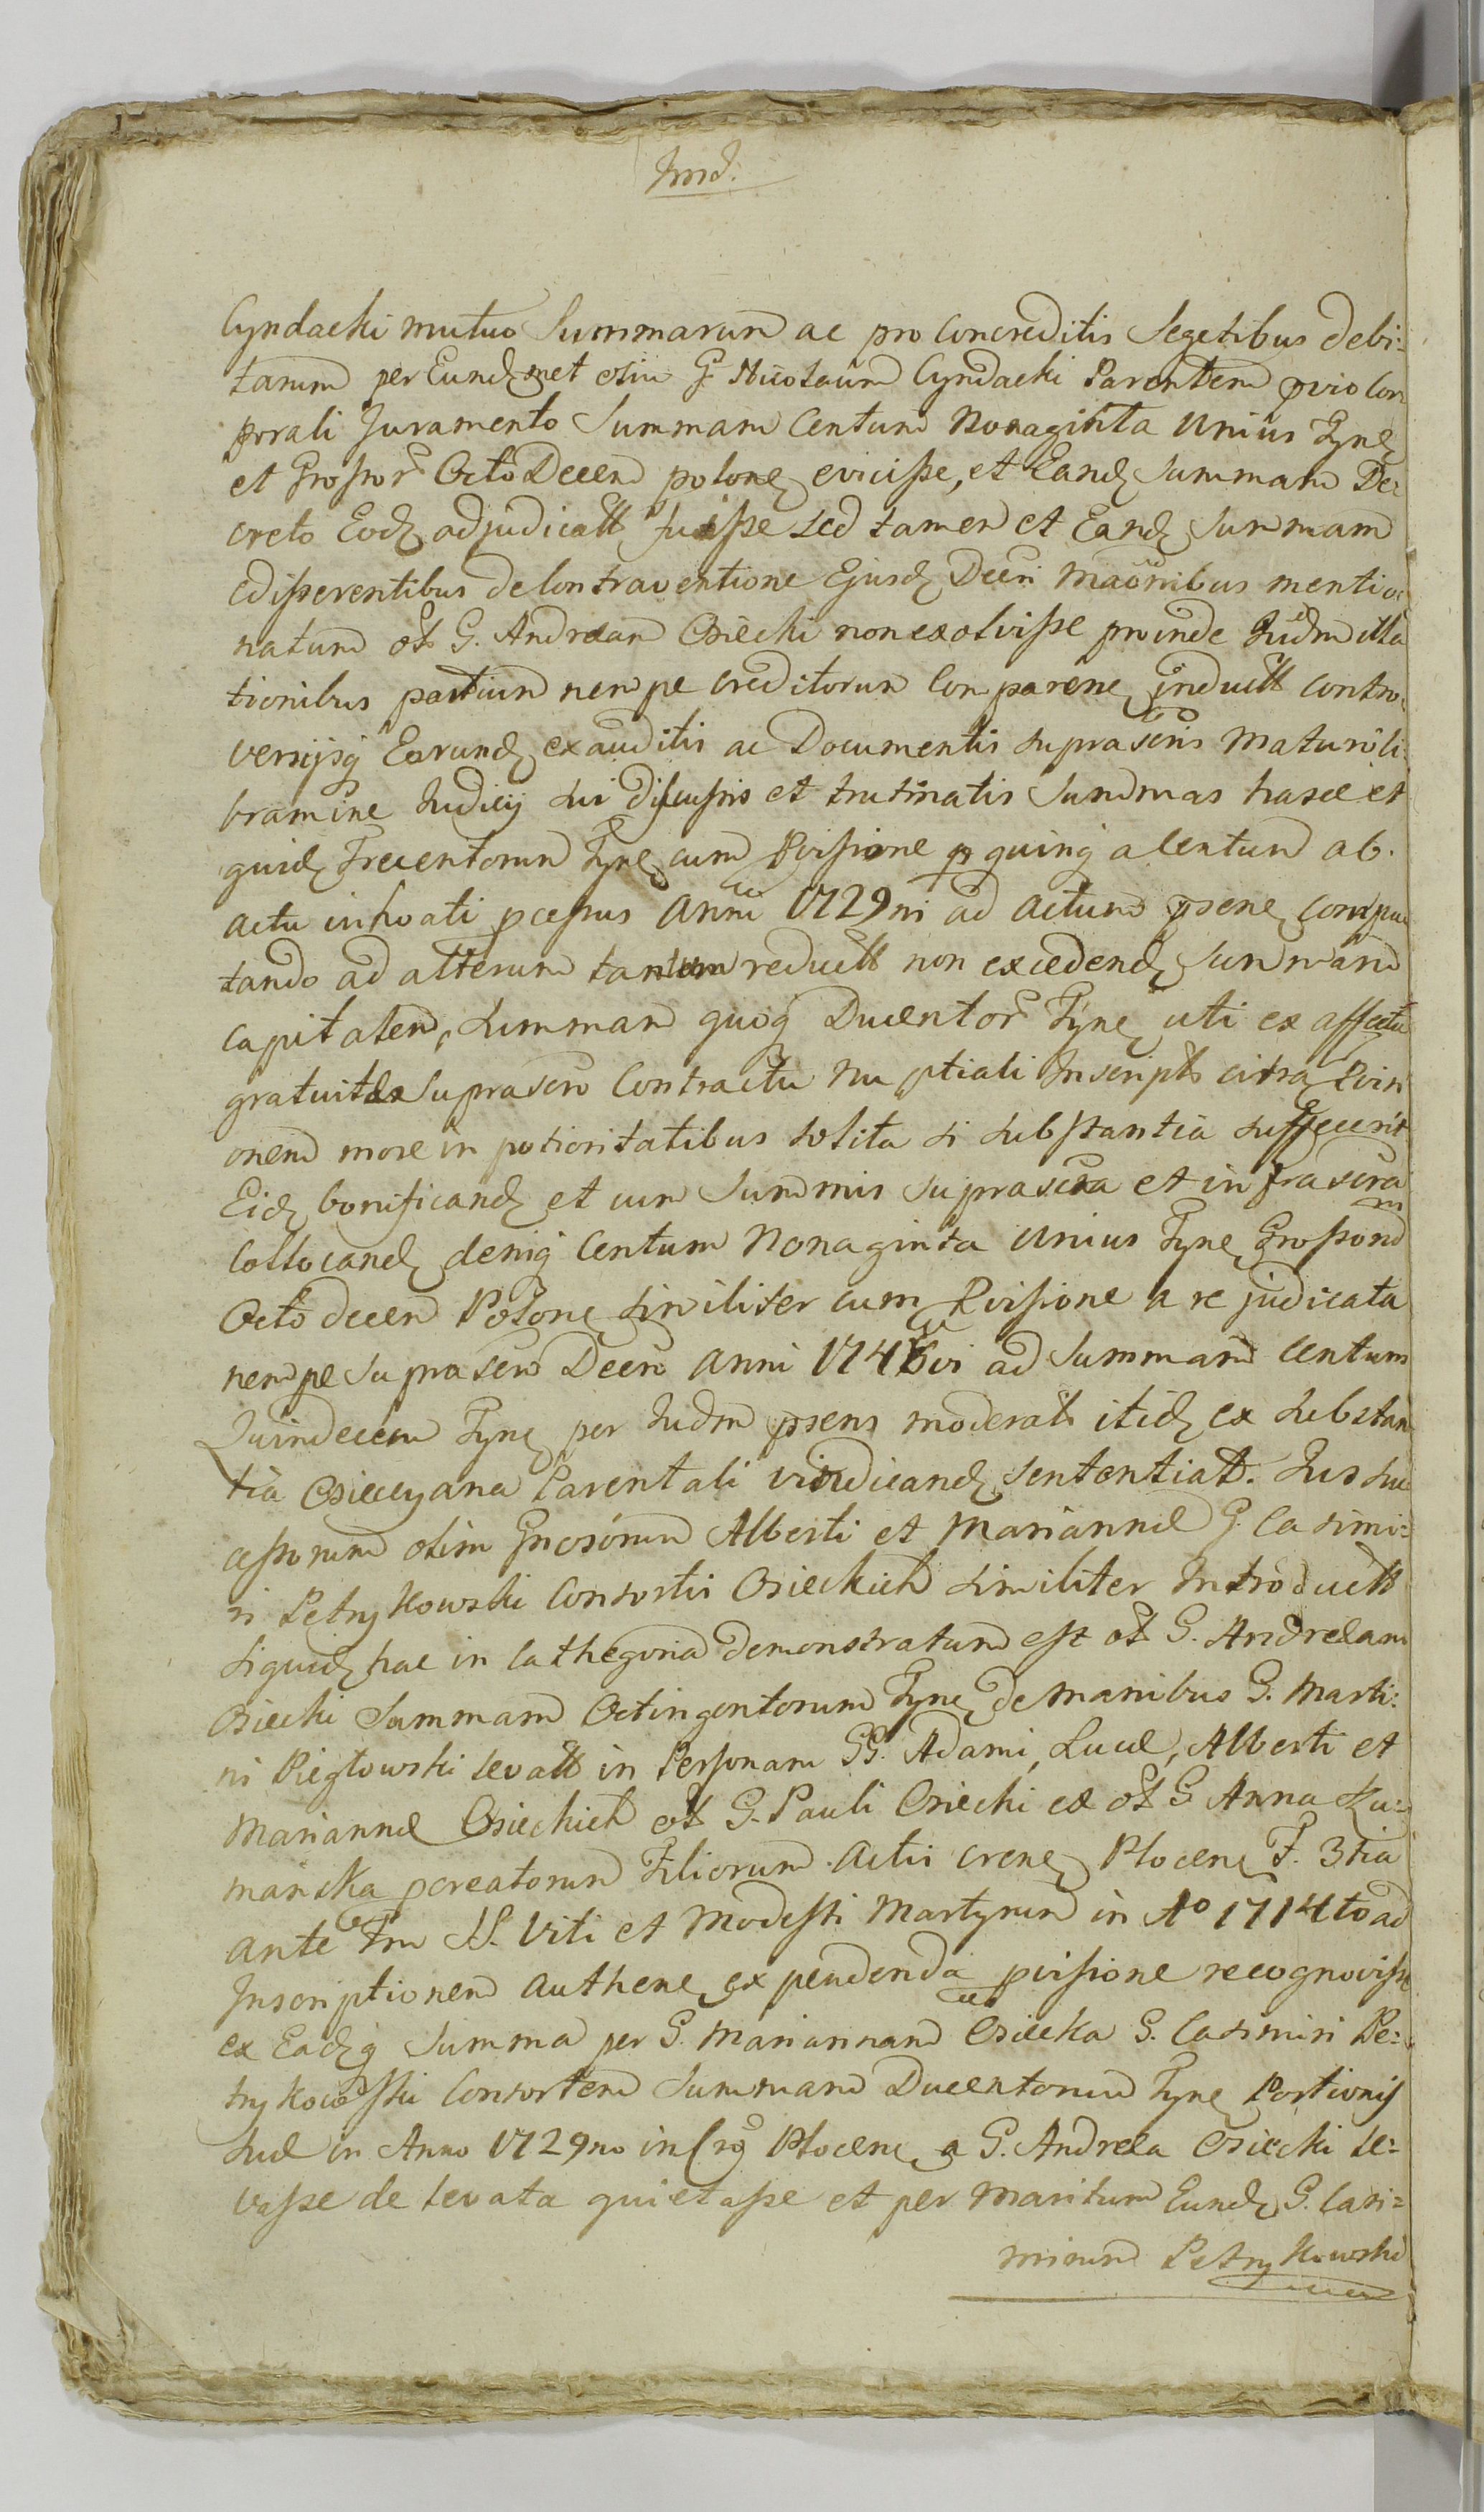 Cyndacki mutuo Summarum ac pro concreditis Segetibus debi:
tarum per Eundmet olim G. Nicolaum Cyndacki Parentem pvio Cor
porali Juramento Summam Centum Nonaginta Unius Tynf
et Grossor Octo Decem polonl evicisse, et Eand Summam De:
creto Eod adjudicatt fuisse sed tamen et Eand Summam
Edisserentibus de Contraventione Ejusd Decri maonibus mentio:
natum ol G. Andream Osiecki non exolvisse proinde Judm illa
tionibus partium nempe Creditorum Comparene induett contro:
versijsq Earund exauditis ac Documentis suprascris Maturoli:
bramine Judicij sui discussis et trutinatis Summas hasce et
quid Trecentorum Tynf cum Pvisione p quinq a Centum ab
actu inhoati pcessus Anni 1729ni ad actum psene compu
tando ad alterum tantum reductt non excedend Summam
capitalem, Summam quoq Ducentor Tynf uti ex affectu
gratuito suprascro Contractu Nuptiali Inscript citra Pvisi
onem more in potioritatibus solita si substantia suffecerit
Eid bonificand et cum Summis suprascra et infrascra
Collocand deniq Centum Nonaginta Unius Tynf Grossorum
Octo decem Polone similiter cum Pvisione a re judicata
nempe suprascro Decro Anni 1746vi ad Summam Centum
Quindecem Tynf per Judm psens moderat itid ex Substan
tia Osieciyana Parentali vindicand sententiat. Jus suc
cessorum olim Gnosorum Alberti et Mariannæ G. Casimi:
ri Petrykowski Consortis Osieckich similiter Introductt
siquid hac in Cathegoria demonstratum est ol G. Andream
Osiecki Summam Octingentorum Tynf de manibus G. Marti:
ni Pieglowski levatt in Personam GG. Adami, Lucæ, Alberti et
Mariannæ Osieckich ol G. Pauli Osiecki ex ol G Anna Ku:
manska pcreatorum Filiorum Actis Crene Plocene F. 3tia
ante Ftm SS. Viti et Modesti Martyrum in Ao 1714to ad
Inscriptionem Authene expendenda pvisione recognovisse
ex Eadq Summa per G. Mariannam Osiecka G. Casimiri Pe:
trykowski Consortem Summam Ducentorum Tynf Portionis
suæ in Anno 1729no in Plocene a G. Andrea Osiecki le:
vasse de levata quietasse et per Maritum Eund G. Casi=
mirum Petrykowski